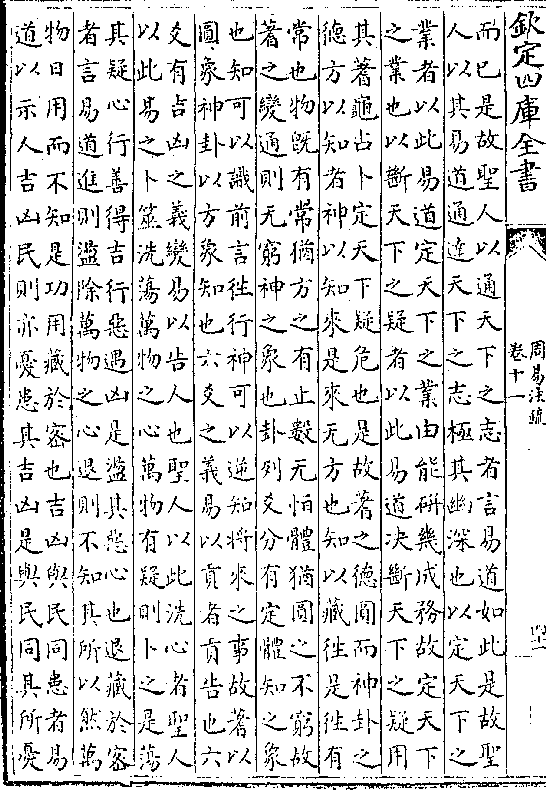 欽定四庫全書
周易注疏
卷十一
而已是故聖人以通天下之志者言易道如此是故聖
人以其易道通達天下之志極其幽深也以定天下之
業者以此易道定天下之業由能研幾成務故定天下
之業也以斷天下之疑者以此易道决斷天下之疑用
其蓍龜占卜定天下疑危也是故蓍之德圓而神卦之
德方以知者神以知來是來无方也知以藏徃是徃有
常也物既有常猶方之有止數无怕體猶圓之不窮故
蓍之變通則无窮神之象也卦列爻分有定體知之象
也知可以識前言徃行神可以逆知將來之事故蓍以
圓象神卦以方象知也六爻之義易以貢者貢告也六
爻有占凶之義變易以告人也聖人以此洗心者聖人
以此易之卜筮洗蕩萬物之心萬物有疑則卜之是蕩
其疑心行善得吉行惡遇凶是盪其惡心也退藏於密
者言易道進則盪除萬物之心退則不知其所以然萬
物日用而不知是功用藏於密也吉凶與民同患者易
道以示人吉凶民則亦憂患其吉凶是與民同其所憂